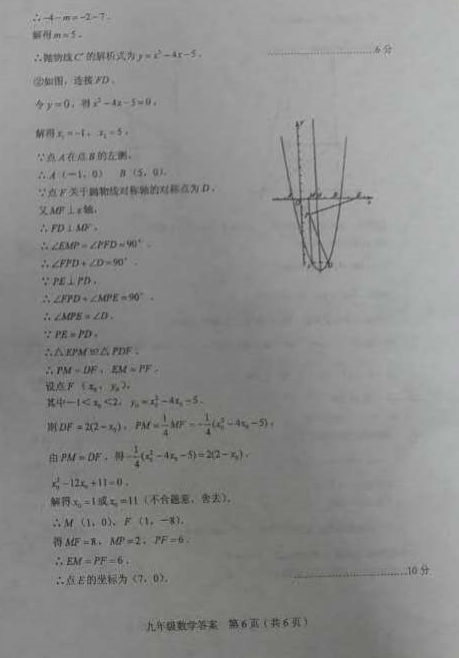 ∴-4-m=-2-7.
解得m=5.
∴抛物线C'的解析式为y=x²-4x-5. ……………………6分
②如图，连接FD.
令y=0，得x²-4x-5=0.
解得x₁=-1，x₂=5.
∵点A在点B的左侧，
∴A（-1，0） B（5，0）.
∵点F关于抛物线对称轴的对称点为D，
又MF⊥x轴，
∴FD⊥MF.
∴∠EMP=∠PFD=90°.
∴∠FPD+∠D=90°.
∵PE⊥PD，
∴∠FPD+∠MPE=90°.
∴∠MPE=∠D.
∵PE=PD，
∴△EPM≌△PDF.
∴PM=DF，EM=PF.
设点F（x₀，y₀），
其中-1<x₀<2，y₀=x₀²-4x₀-5.
则DF=2(2-x₀)，PM=1/4MF=-1/4(x₀²-4x₀-5)，
由PM=DF，得-1/4(x₀²-4x₀-5)=2(2-x₀).
x₀²-12x₀+11=0.
解得x₀=1或x₀=11（不合题意，舍去）.
∴M（1，0），F（1，-8）.
得MF=8，MP=2，PF=6.
∴EM=PF=6.
∴点E的坐标为（7，0）. ……………………10分
九年级数学答案 第6页（共6页）